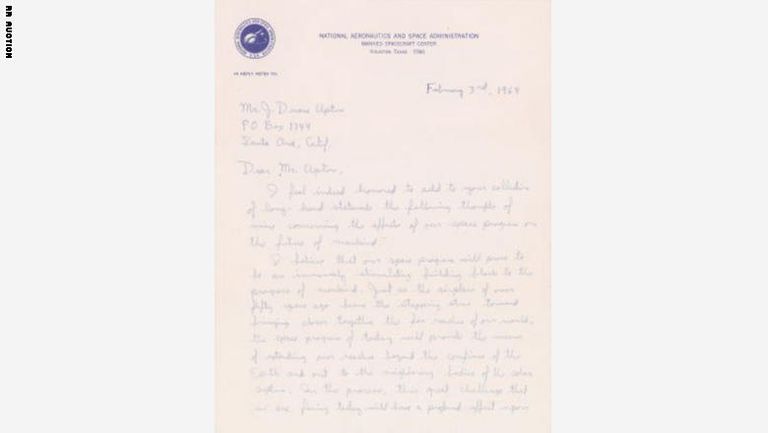 RR AUCTION
NATIONAL AERONAUTICS AND SPACE ADMINISTRATION
MANNED SPACECRAFT CENTER
HOUSTON, TEXAS
IN REPLY REFER TO:
February 3rd, 1964
Mr. J. Duane Upton
P.O. Box 1744
Santa Ana, Calif.
Dear Mr. Upton,
I feel indeed honored to add to your collection
of long-hand statements the following thoughts of
mine concerning the effects of our space program on
the future of mankind.
I believe that our space program will prove to
be an immensely stimulating building block to the
progress of mankind. Just as the airplane of over
fifty years ago became the stepping stone toward
bringing closer together the far reaches of our world,
the space program of today will provide the means
of extending our reaches beyond the confines of the
Earth and out to the neighboring bodies of the solar
system. In the process, this great challenge that
we are facing today will have a profound effect upon